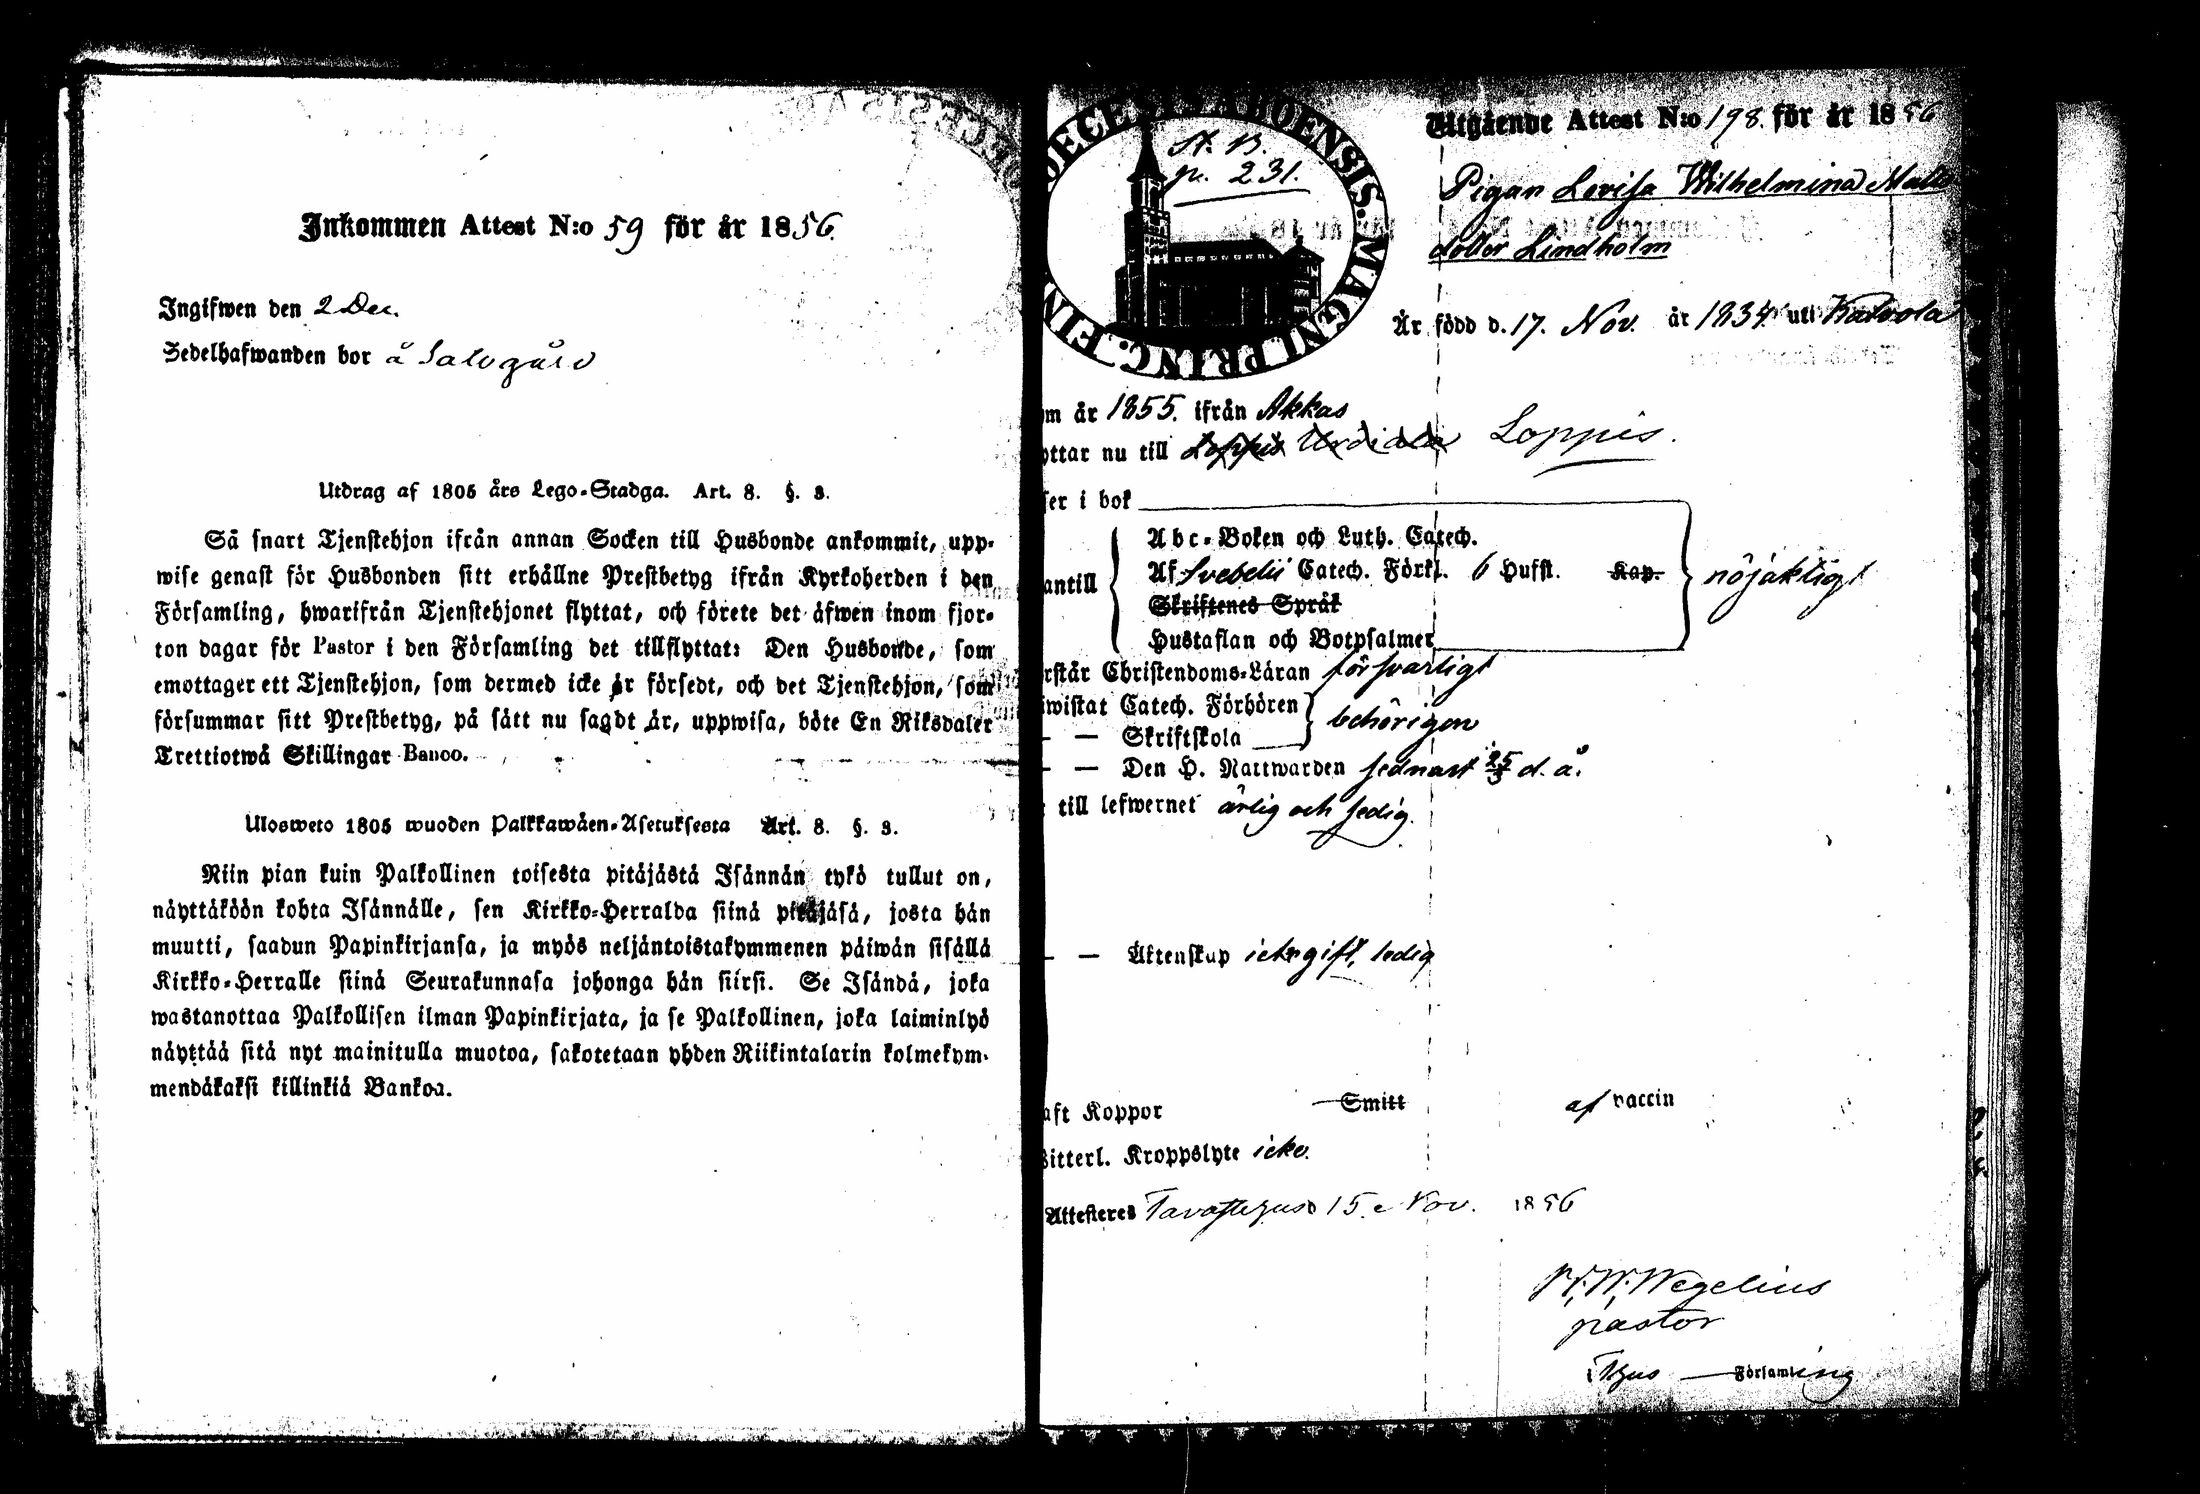 Inkommen Attest N:o 59 för år 1856.
Ingifwen den 2 Dec.
Sedelhafwanden bor å
Utdrag af 1805 års Lego-Stadga. Art. 8. §. 3.
Så snart Tjenstehjon ifrån annan Socken till Husbonde ankommit, upp-
wise genast för Husbonden sitt erhållne Prestbetyg ifrån Kyrkoherden i den
Församling, hwarifrån Tjenstehjonet flyttat, och förete det äfwen inom fjor-
ton dagar för Pastor i den Församling det tillflyttat: Den Husbonde, som
emottager ett Tjenstehjon, som dermed icke är försedt, och det Tjenstehjon, som
försummar sitt Prestbetyg, på sätt nu sagdt är, uppwisa, böte En Riksdaler
Trettiotwå Skillingar Banco.
Ulosweto 1805 wuoden Palkkawäen-Asetuksesta Art. 8. §. 3.
Niin pian kuin Palkollinen toisesta pitäjästä Isännän tykö tullut on,
näyttäköön kohta Isännälle, sen Kirkko-Herralda siinä pitäjäsä, josta hän
muutti, saadun Papinkirjansa, ja myös neljäntoistakymmenen päiwän sisällä
Kirkko-Herralle siinä Seurakunnasa johonga hän siirsi. Se Isändä, joka
wastanottaa Palkollisen ilman Papinkirjata, ja se Palkollinen, joka laiminlyö
näyttää sitä nyt mainitulla muotoa, sakotetaan yhden Riikintalarin kolmekym-
mendäkaksi killinkiä Bankoa.
OECESIS ABOENSIS. MAGNI PRINC. FIN
St. B.
p. 231.
Utgående Attest N:o 198. för år 1856
Pigan Lovisa Wilhelmina Matts
dotter Lindholm
Är född d. 17. Nov. år 1834 uti Kalvola
om år 1855. ifrån Akkas
yttar nu till Loppis Urdiala Loppis.
ser i bok
Abc-Boken och Luth. Catech.
antill Af Svebelii Catech. Förkl. 6 Hufst. Kap. nöjaktigt
Skriftenes Språk
Hustaflan och Botpsalmer
rstår Christendoms-Läran försvarligt
iwistat Catech. Förhören behörigen
— — Skriftskola
— — Den H. Nattwarden sednast 25/5 d. å.
till lefwernet ärlig och sedig.
— — Äktenskap icke gift, ledig
aft Koppor Smitt af vaccin
Witterl. Kroppslyte icke.
Attesteres Tavastehus 15. Nov. 1856
Wegelius
pastor
i Thus Församling